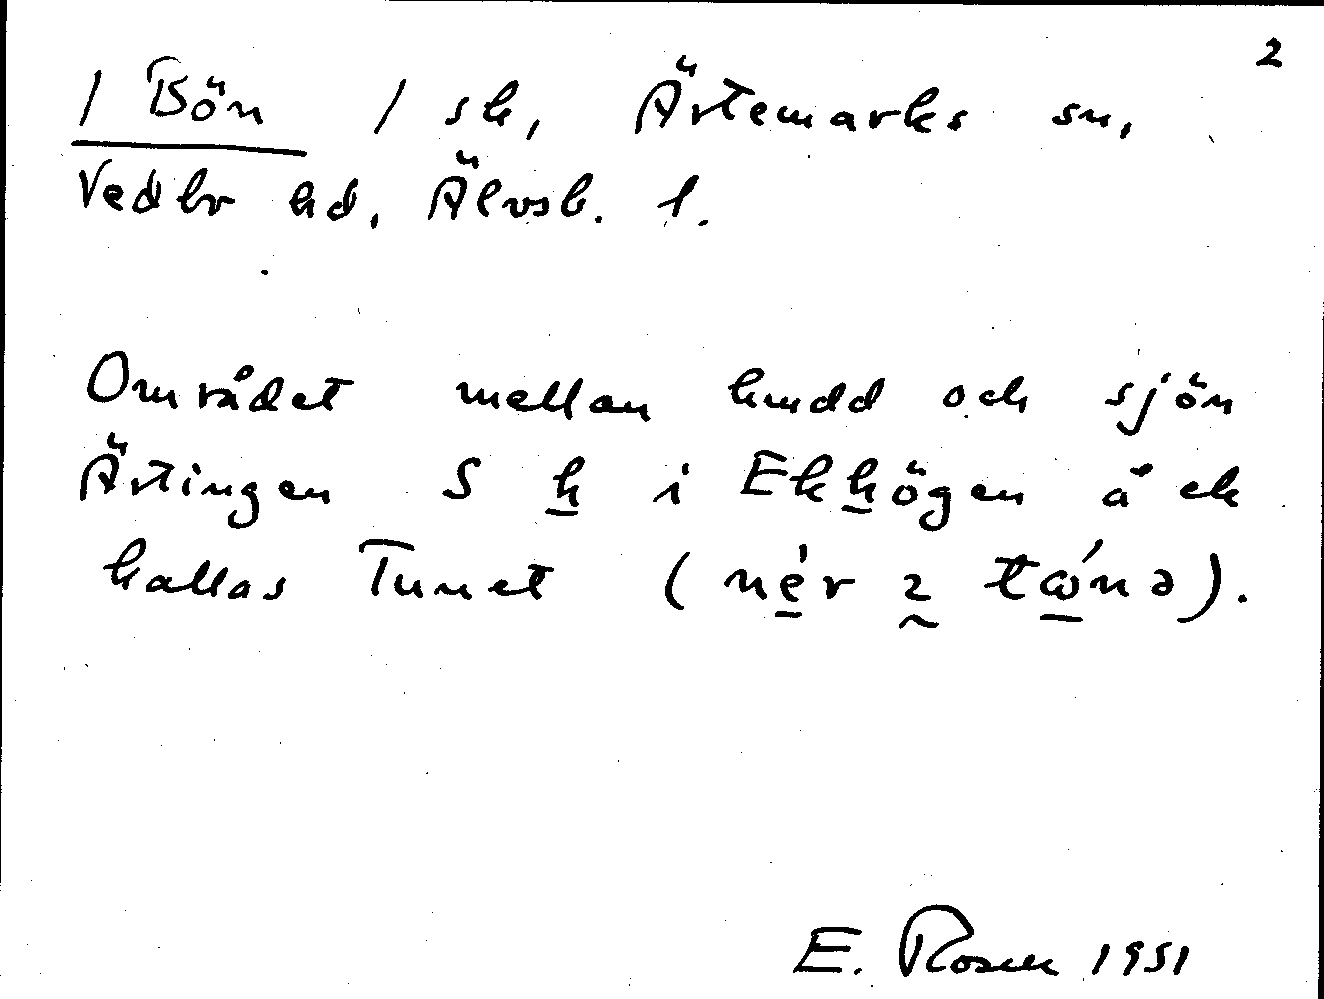 2
/ Bön / sk, Ärtemarks sn,
Vedbo hd, Älvsb. l.
Området mellan hmdd och sjön
Ärtingen S h i Ekhögen å ek
kallas Tunet (nér 2 tớnə).
E. Rosen 1951